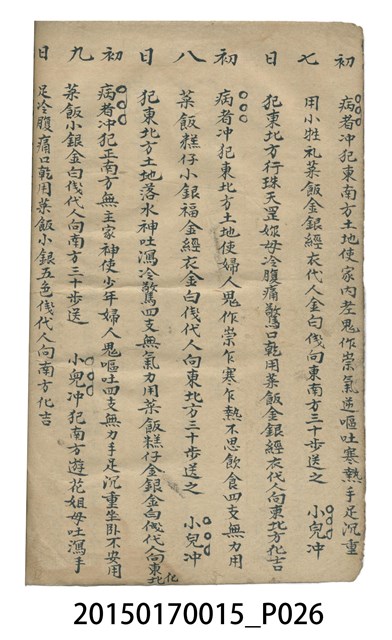 初
病者冲犯東南方土地使家内老鬼作祟氣逆嘔吐寒熱手足沉重
七
用小牲礼菜飯金銀經衣代人金白伐向東南方三十步送之 小兒冲
日
犯東北方行珠天罡妳母冷腹痛驚口乾用菜飯金銀經衣代人向東北方化吉
初
病者冲犯東北方土地使婦人鬼作祟乍寒乍熱不思飲食四支無力用
八
菜飯糕仔小銀福金經衣金白伐代人向東北方三十步送之 小兒冲
日
犯東北方土地落水神吐瀉冷驚四支無氣力用菜飯糕仔金銀金白伐代人向東北化
初
病者冲犯正南方無主家神使少年婦人鬼嘔吐四支無力手足沉重坐卧不安用
九
菜飯小銀金白伐代人向南方三十步送 小兒冲犯南方遊花姐母吐瀉手
日
足冷腹痛口乾用菜飯小銀五色伐代人向南方化吉
20150170015_P026